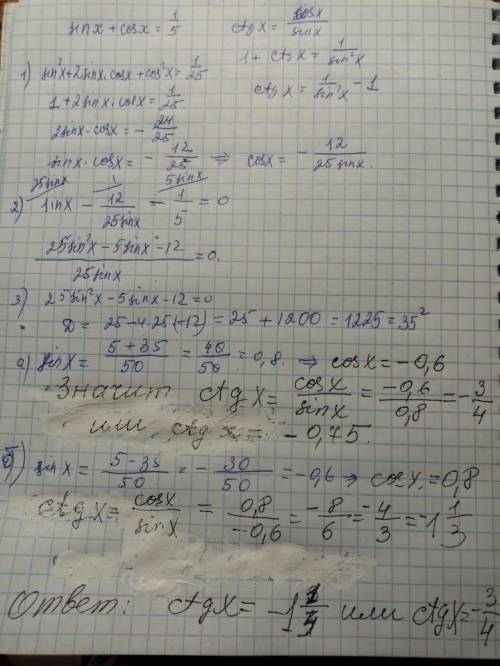 sinx + cosx = 1/5
ctgx = cosx/sinx
1 + ctgx = 1/sin²x
ctgx = 1/sin²x - 1
1) sin²x + 2sinx·cosx + cos²x = 1/25
1 + 2sinx·cosx = 1/25
2sinx·cosx = - 24/25
sinx·cosx = - 12/25 ⇒ cosx = - 12/25sinx.
25sinx 1 5sinx
2) sinx - 12/25sinx - 1/5 = 0
25sin²x - 5sinx - 12/25sinx = 0.
3) 25sin²x - 5sinx - 12 = 0
D = 25 - 4·25·(-12) = 25 + 1200 = 1225 = 35²
а) sinx = 5+35/50 = 40/50 = 0,8. ⇒ cosx = -0,6
Значит ctgx = cosx/sinx = -0,6/0,8 = -3/4
или ctgx = -0,75.
б) sinx = 5-35/50 = - 30/50 = -0,6 ⇒ cosx = 0,8
ctgx = cosx/sinx = 0,8/-0,6 = -8/6 = -4/3 = -1 1/3
Ответ: ctgx = -1 1/3 или ctgx = -3/4